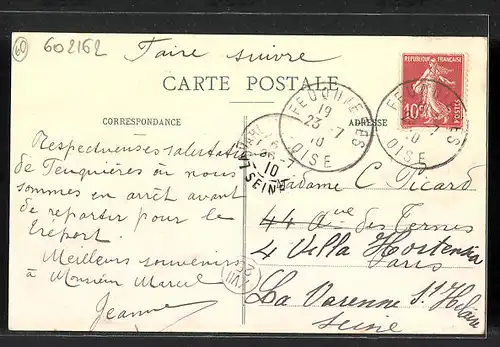 60
602162
Faire suivre
CARTE POSTALE
CORRESPONDANCE
ADRESSE
REPUBLIQUE FRANÇAISE
10c
POSTES
FEUQUIERES
19
23 -7
10
OISE
FEUQUIERES
-7
10
OISE
10
SEINE
XVII
Respectueuses salutations
de Feuquières où nous
sommes en arrêt avant
de repartir pour le
Tréport.
Meilleurs souvenirs
à Monsieur Marcel
Jeanne
Madame C Picard
44 Ave des Ternes
4 Villa Hortensia
Paris
La Varenne St Hilaire
Seine